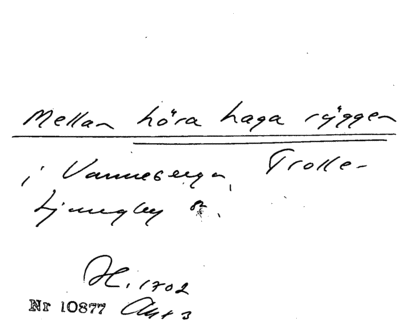 Mellan höra haga ryggen
i Vanneberga, Trolle-
Ljungby sn.
H. 1702
Nr 10877 Akt 3